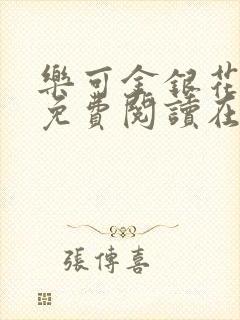 樂可金銀花
免費閱讀在
張傳喜